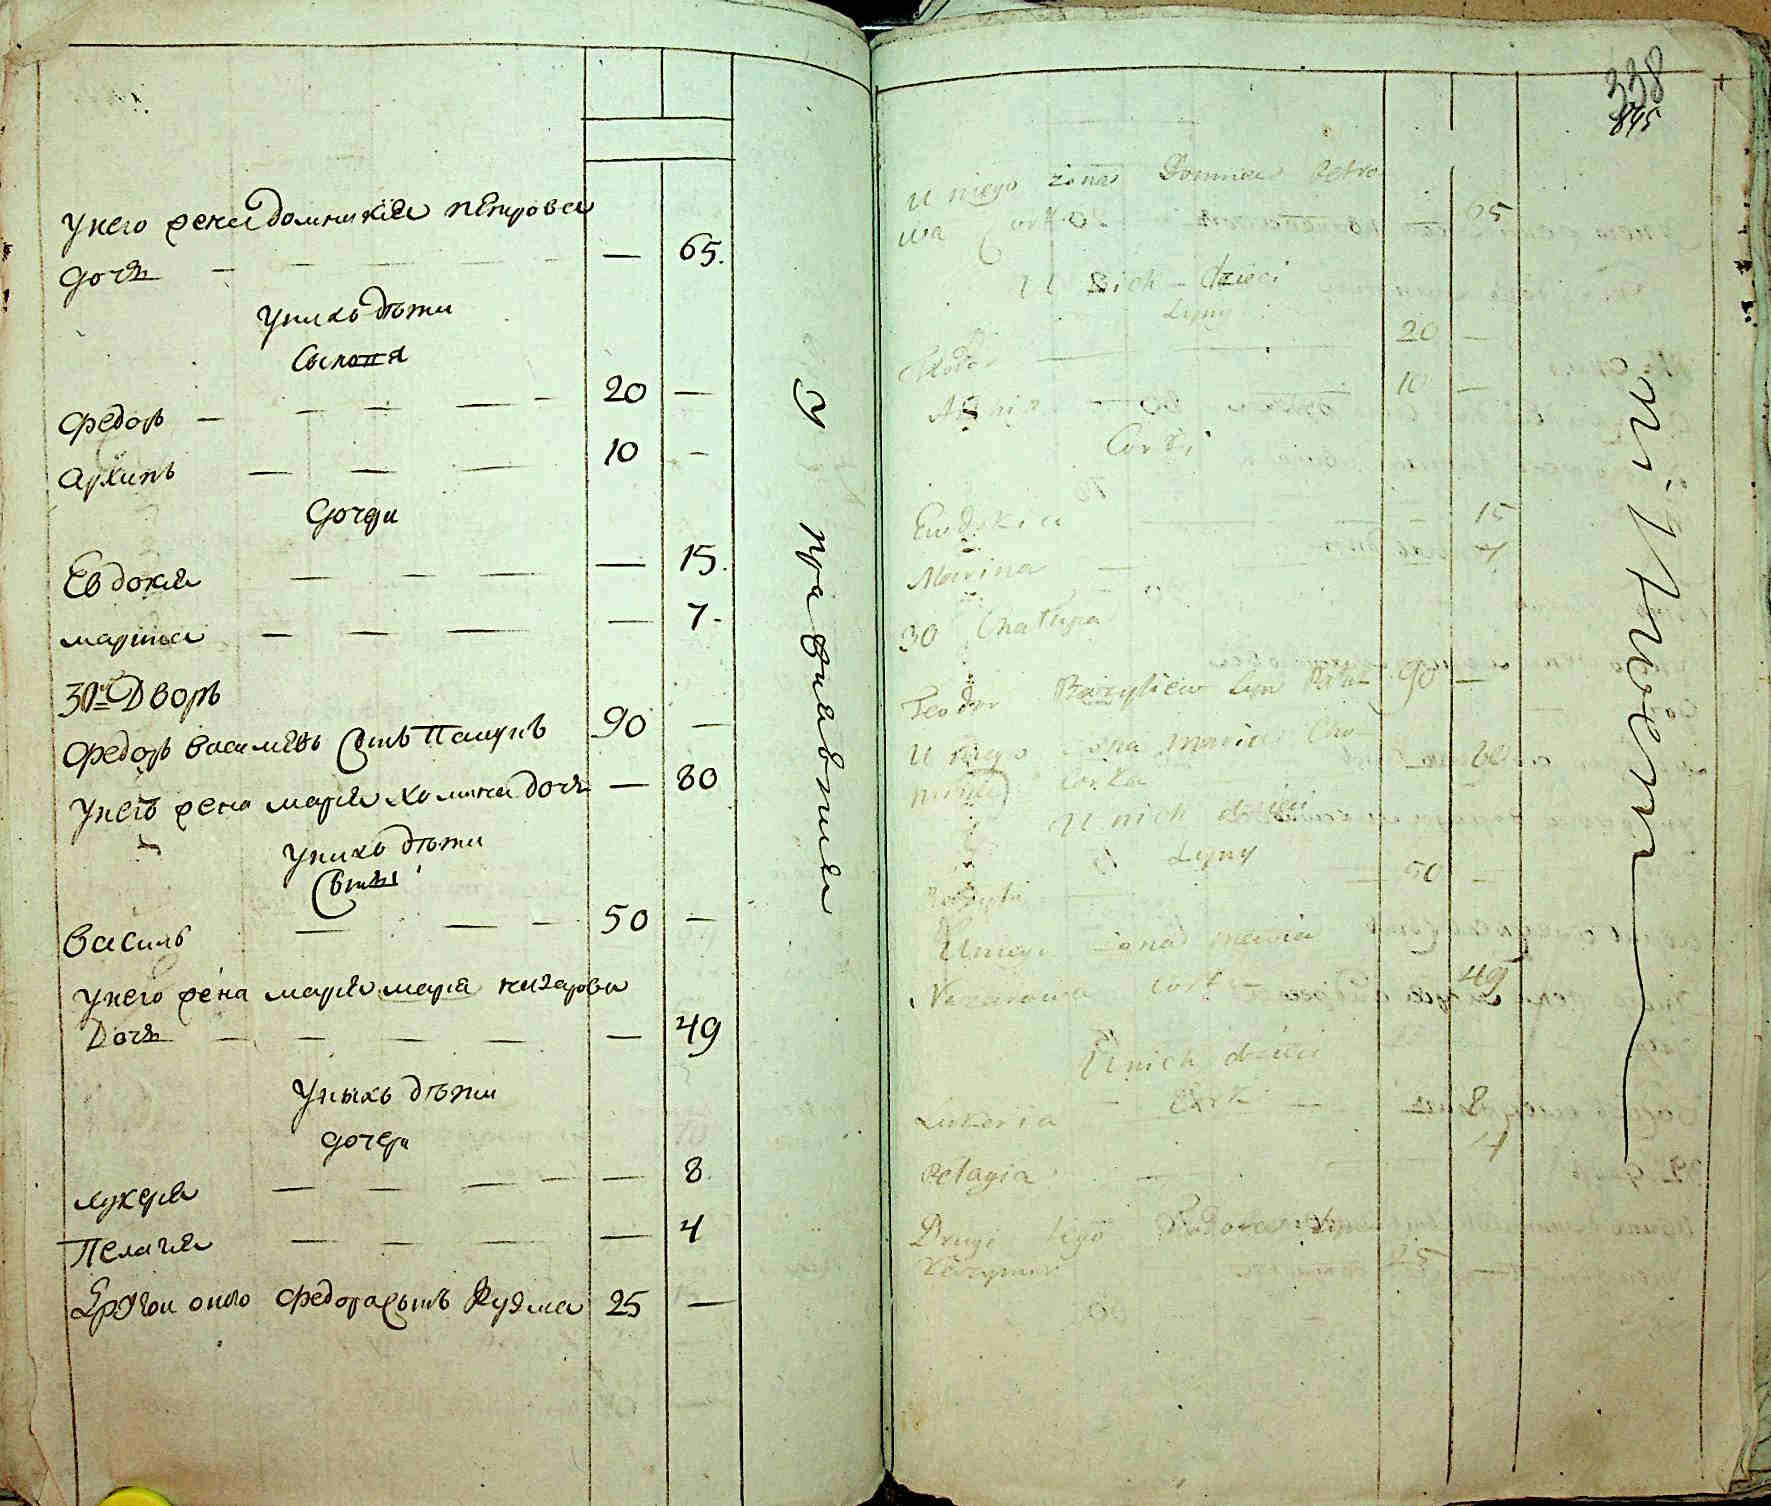 у него жена домникия петрова
дочь — 65.
у нихъ дѣти
Сыновя
Федоръ — 20 —
архипъ — 10 —
дочери
Евдокия — 15.
марина — 7.
30й Дворъ
Федоръ василевъ Сынъ 90 —
у него жена мария хомина дочь — 80
у нихъ дѣти
Сыны
василь 50 —
у него жена мария мария назарова
Дочь — 49
у ныхъ дѣти
дочери
лукеря — 8.
Пелагия — 4
Другои оного Федора сынъ Кузма 25 —
У правителния
338
845
U niego żona Domnica Petro
wa Corka 65
U nich dzieci
Syny
Fedor 20 —
10 —
Corki
Eudokia 15
Marina 7
30 Chałupa
Feodor Bazyliew Syn 90 —
U niego żona maria Cho
mina Corka 80
U nich dzieci
Syny
50 —
U niego żona maria
Nazarowa Corka 49
U nich dzieci
Corki
Lukeria 8
Pelagia 4
Drugi tego Fedora Syn
25